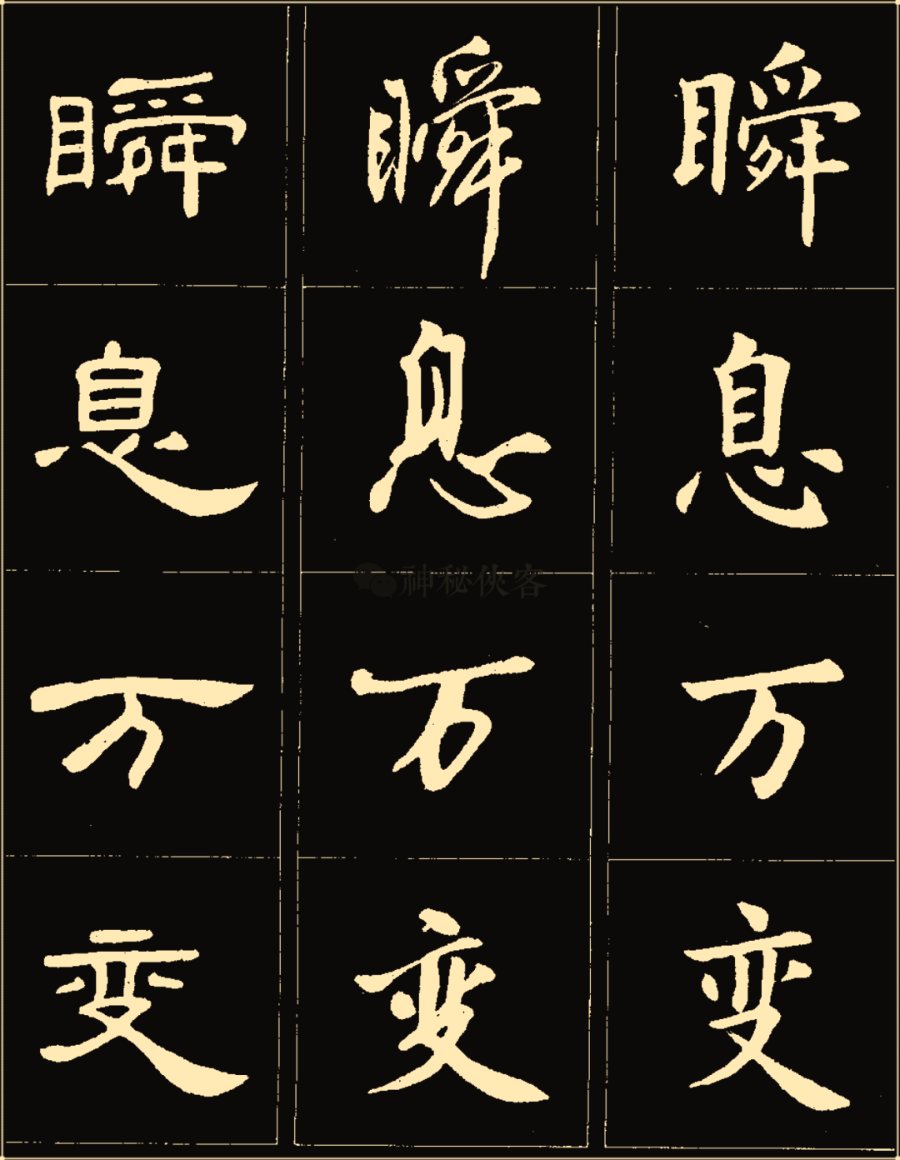 瞬息万变
瞬息万变
瞬息万变
神秘侠客